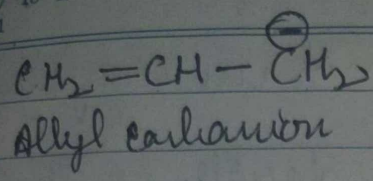 CH₂=CH–C⊖H₂
Allyl carbanion